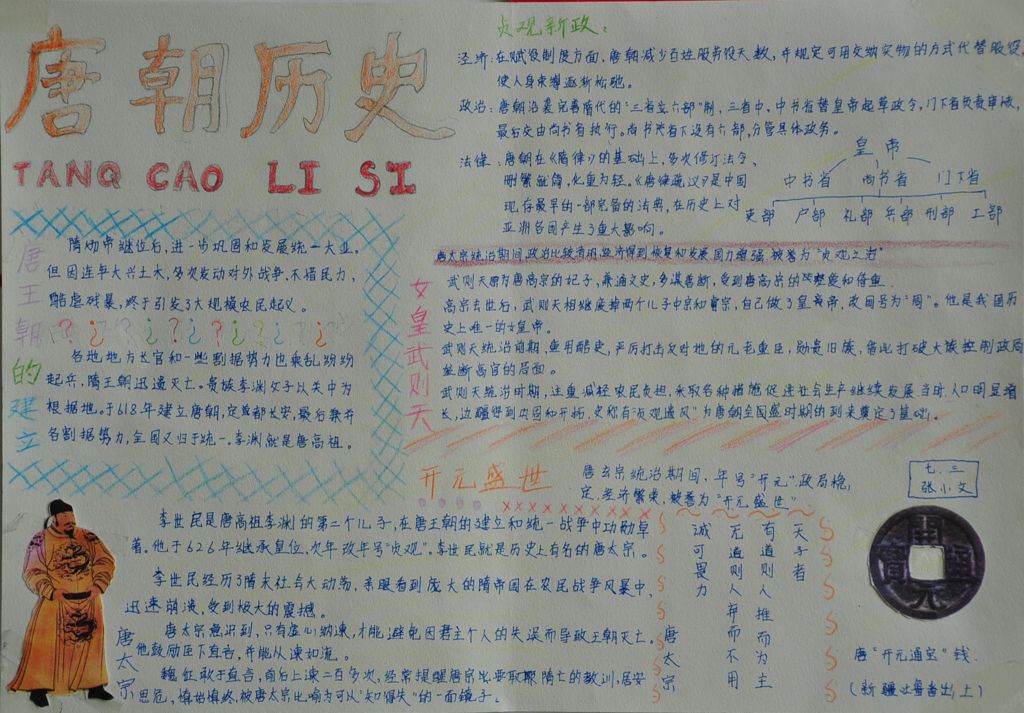 唐朝历史
TANQ CAO LI SI
唐王朝的建立
隋炀帝继位后,进一步巩固和发展统一大业。
但因连年大兴土木,多次发动对外战争,不惜民力,
酷虐残暴,终于引发了大规模农民起义。
各地地方长官和一些割据势力也乘乱纷纷
起兵,隋王朝迅速灭亡。贵族李渊父子以关中为
根据地。于618年建立唐朝,定都长安,最后兼并
各割据势力,全国又归于统一。李渊就是唐高祖。
贞观新政:
经济:在赋役制度方面,唐朝减少百姓服劳役天数,并规定可用交纳实物的方式代替服役
使人身束缚逐渐松弛。
政治:唐朝沿袭完善隋代的“三省六部”制,三省中,中书省替皇帝起草政令,门下省负责审核,
最后交由尚书省执行。尚书省下设有六部,分管具体政务。
法律:唐朝在《隋律》的基础上,多次修订法令、
删繁就简,化重为轻。《唐律疏议》是中国
现存最早的一部完备的法典,在历史上对
亚洲各国产生了重大影响。
皇帝
中书省 尚书省 门下省
吏部 户部 礼部 兵部 刑部 工部
唐太宗统治期间,政治比较清明,经济得到恢复和发展,国力增强,被誉为“贞观之治”
女皇武则天
武则天原为唐高宗的妃子,兼通文史,多谋善断,受到唐高宗的宠爱和倚重。
高宗去世后,武则天相继废掉两个儿子中宗和睿宗,自己做了皇帝,改国号为“周”。他是我国历
史上唯一的女皇帝。
武则天统治前期,重用酷吏,严厉打击反对她的元老重臣,勋贵旧族,借此打破大族控制政局
垄断高官的局面。
武则天统治时期,注重减轻农民负担,采取各种措施促进社会生产继续发展当时人口明显增
长,边疆得到巩固和开拓,史称有“贞观遗风”为唐朝全国盛时期的到来奠定了基础。
开元盛世
唐玄宗统治期间、年号“开元”,政局稳
定,经济繁荣,被誉为“开元盛世”
七.三
张小文
李世民是唐高祖李渊的第二个儿子,在唐王朝的建立和统一战争中功勋卓
著。他于626年继承皇位,次年改年号“贞观”。李世民就是历史上有名的唐太宗。
李世民经历了隋末社会大动荡,亲眼看到庞大的隋帝国在农民战争风暴中,
迅速崩溃,受到极大的震撼。
唐太宗意识到,只有虚心纳谏,才能避免因君主个人的失误而导致王朝灭亡。
他鼓励臣下直言,并能从谏如流。
魏征敢于直言,前后上谏二百多次,经常提醒唐太宗要吸取隋亡的教训,居安
思危,慎始慎终,被唐太宗比喻为可以“知得失”的一面镜子。
唐太宗
天子者
有道则人推而为主
无道则人弃而不用
诚可畏力
唐太宗
開元通寳
唐“开元通宝”钱
(新疆吐鲁番出土)